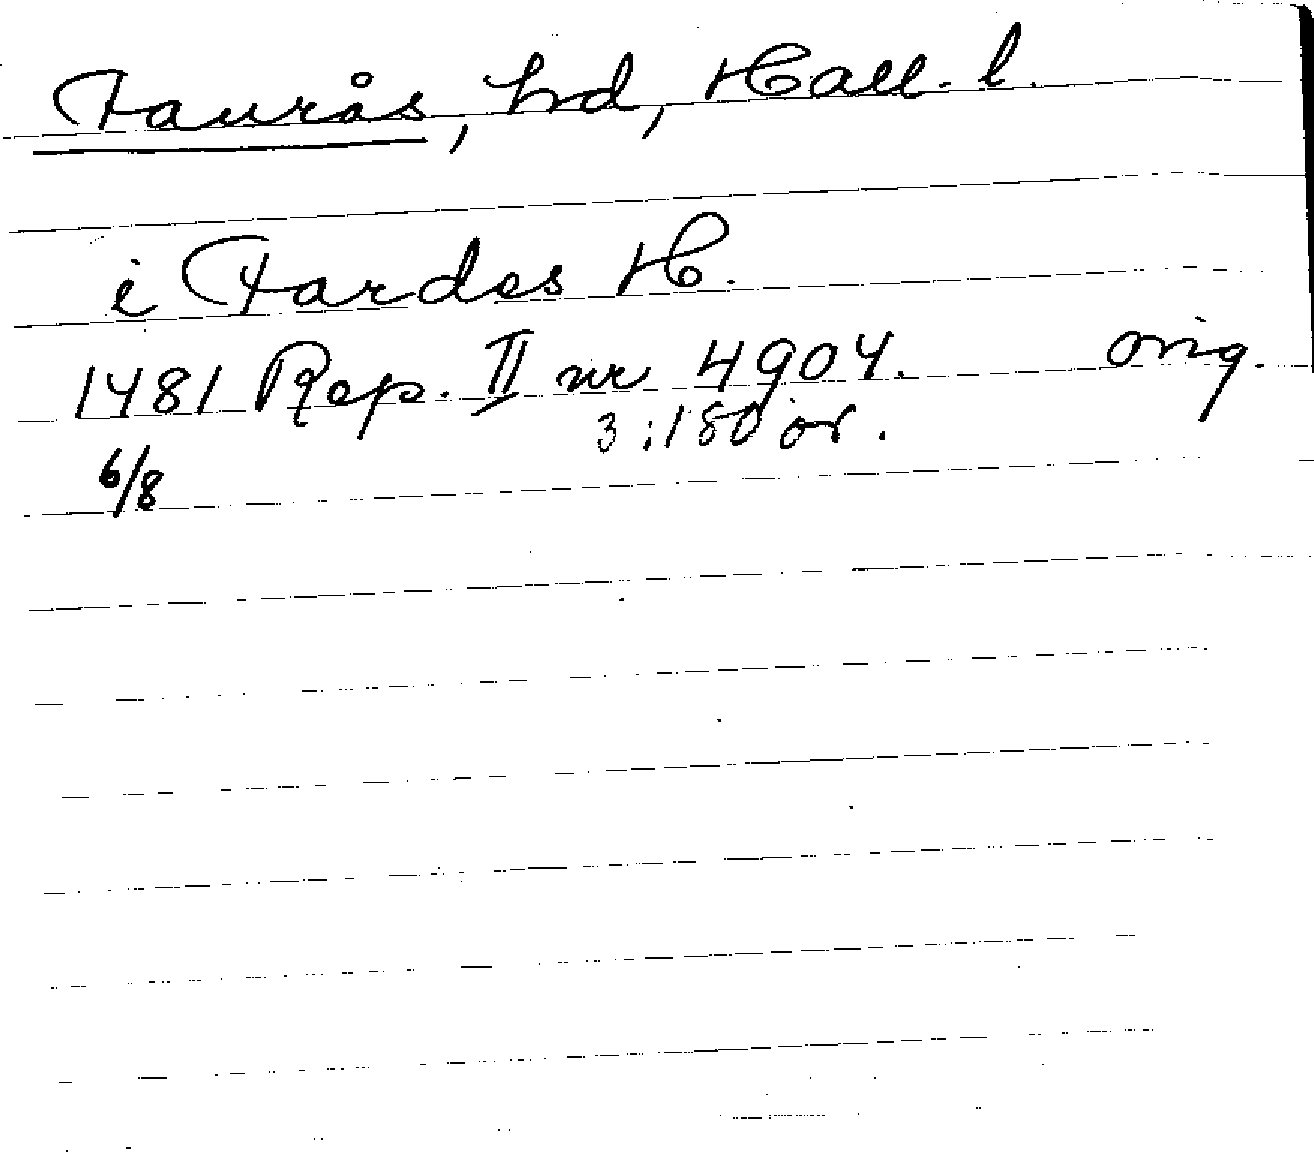 Faurås, hd, Hall. l.
i Fardes H.
1481 Rep. II nr 4904. orig.
3:180 ör.
6/8